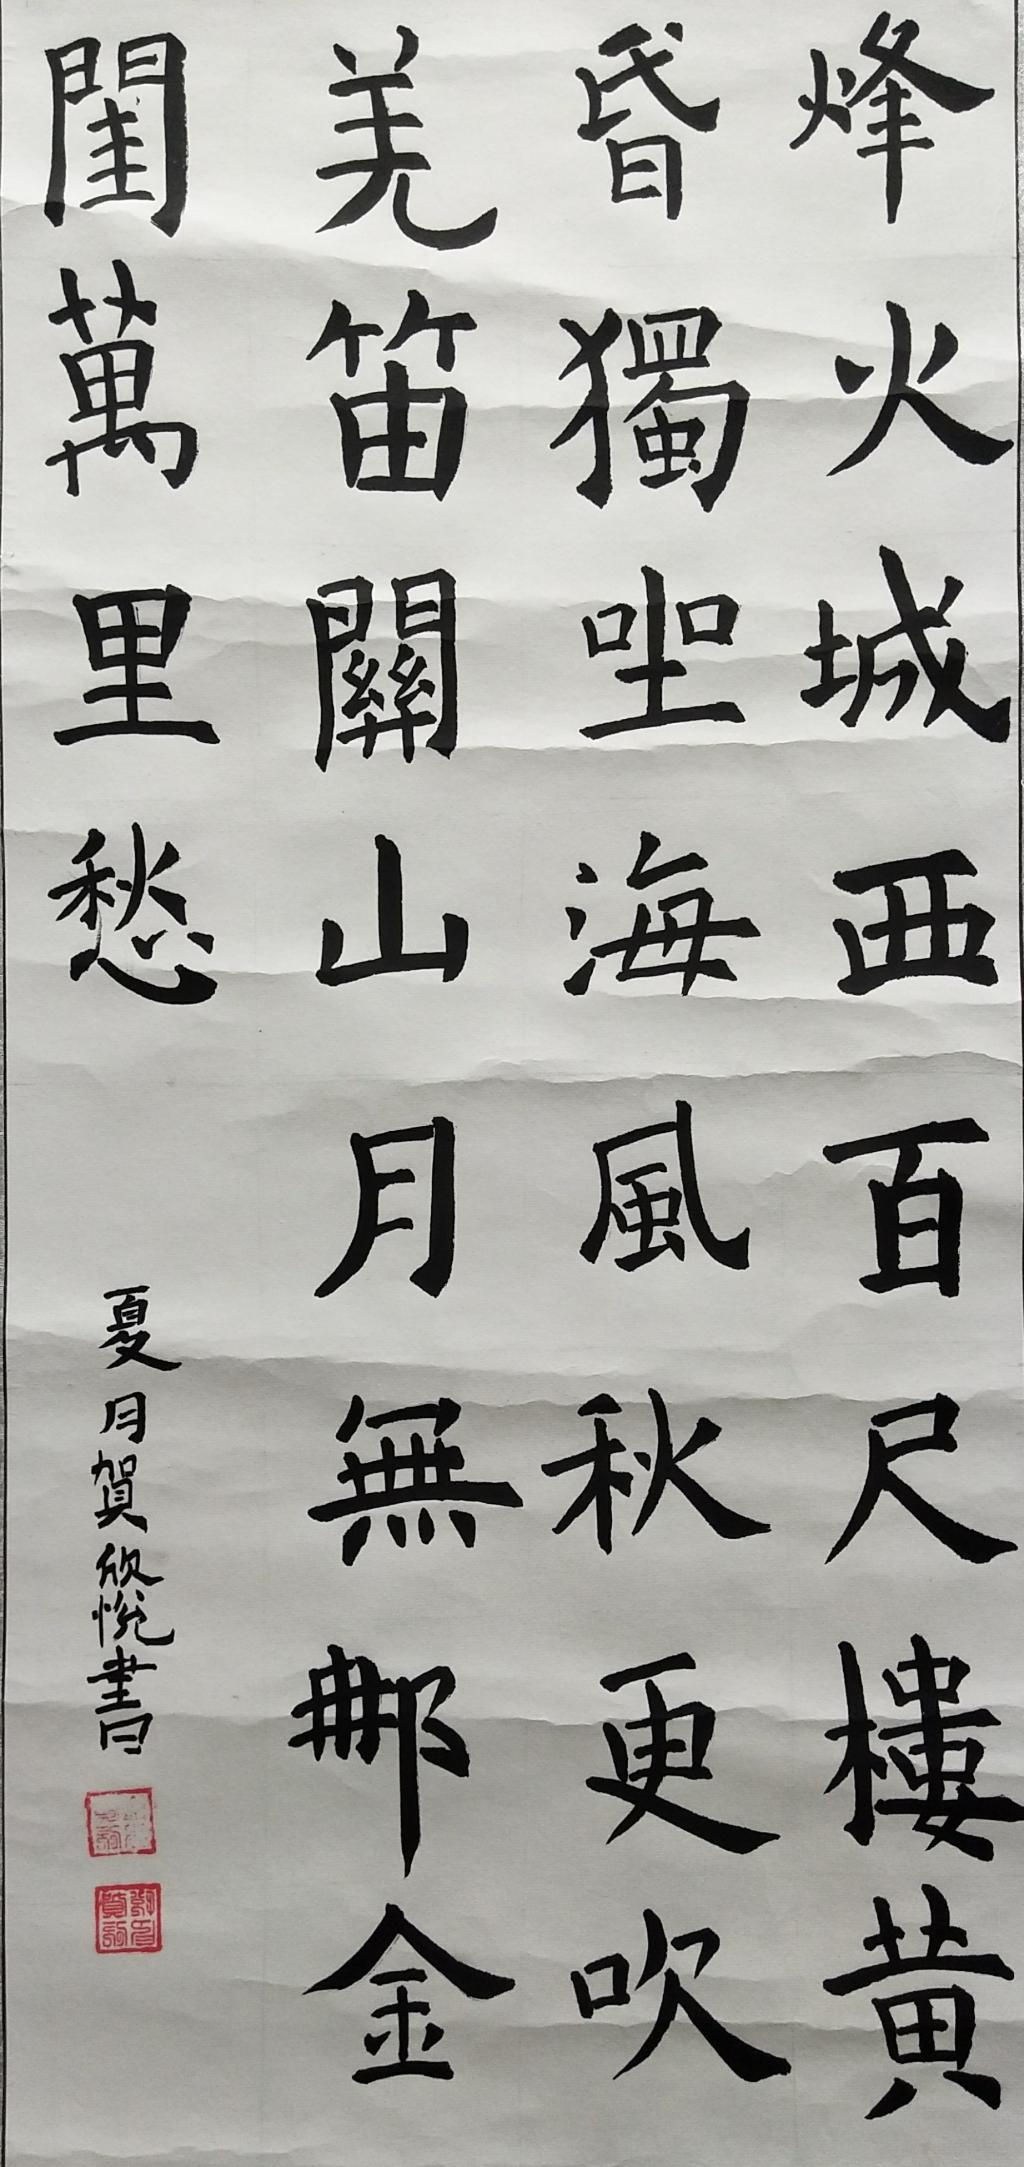 烽火城西百尺樓黄
昏獨坐海風秋更吹
羌笛關山月無那金
閨萬里愁
夏月賀欣悅書